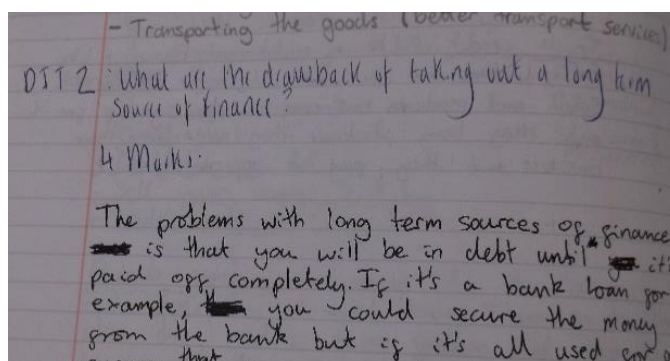 - Transporting the goods (better transport services)
DIT 2 : What are the drawback of taking out a long term
source of finance?
4 Marks.
The problems with long term sources of finance
is that you will be in debt until it's
paid off completely. If it's a bank loan for
example, you could secure the money
from the bank but if it's all used
that